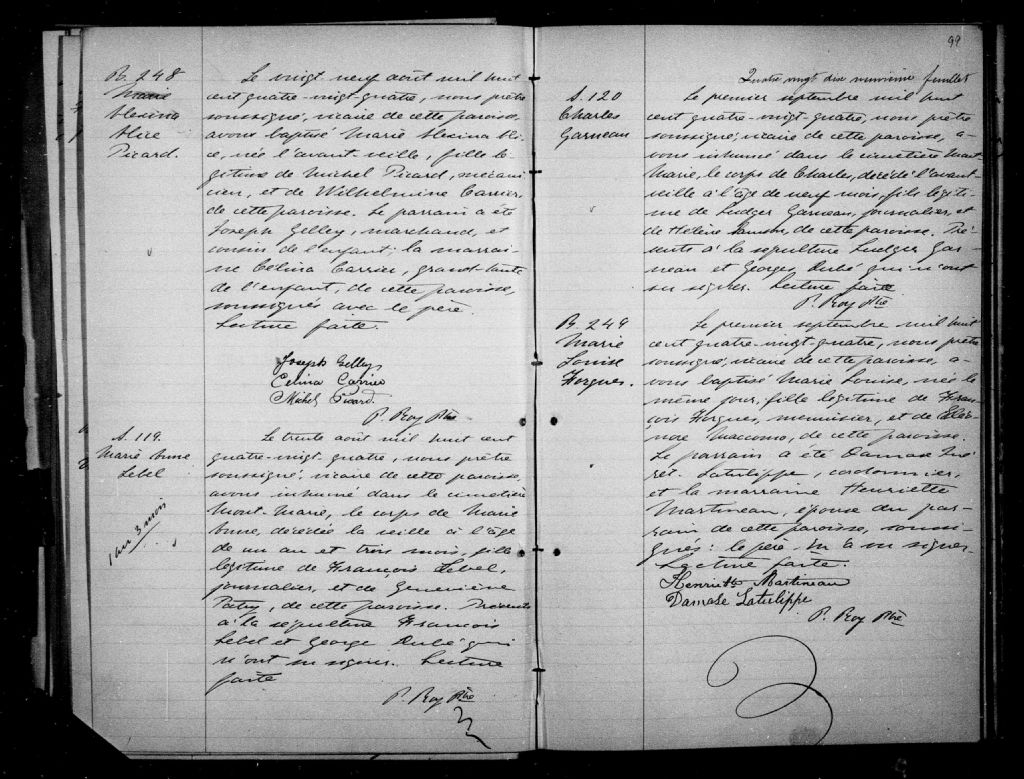 B. 248
Marie
Alexina
Alice
Picard.
Le vingt neuf août mil huit
cent quatre-vingt-quatre, nous prêtre
soussigné, vicaire de cette paroisse,
avons baptisé Marie Alexina Ali-
ce, née l'avant-veille, fille lé-
gitime de Michel Picard, mécani-
cien, et de Wilhelmine Carrier,
de cette paroisse. Le parrain a été
Joseph Gelley, marchand, et
cousin de l'enfant; la marrai-
ne Célina Carrier, grand-tante
de l'enfant, de cette paroisse,
soussignés avec le père.
Lecture faite.
Joseph Gelley
Celina Carrier
Michel Picard.
P. Roy Ptre
S. 119.
Marie Anne
Lebel
1 an 3 mois
Le trente août mil huit cent
quatre-vingt-quatre, nous prêtre
soussigné, vicaire de cette paroisse,
avons inhumé dans le cimetière
Mont-Marie, le corps de Marie
Anne, décédée la veille à l'âge
de un an et trois mois, fille
légitime de François Lebel,
journalier, et de Geneviève
Patry, de cette paroisse. Présents
à la sépulture François
Lebel et George Dubé qui
n'ont su signer. Lecture
faite
P. Roy Ptre
99
Quatre vingt dix neuvième feuillet
S. 120
Charles
Garneau
Le premier septembre mil huit
cent quatre-vingt-quatre, nous prêtre
soussigné, vicaire de cette paroisse, a-
vons inhumé dans le cimetière Mont
Marie, le corps de Charles, décédé l'avant-
veille à l'âge de neuf mois, fils légiti-
me de Ludger Garneau, journalier, et
de Hélène Samson, de cette paroisse. Pré-
sents à la sépulture Ludger Gar-
neau et Georges Dubé qui n'ont
su signer. Lecture faite
P. Roy Ptre
B. 249
Marie
Louise
Forgues.
Le premier septembre mil huit
cent quatre-vingt-quatre, nous prêtre
soussigné, vicaire de cette paroisse, a-
vons baptisé Marie Louise, née le
même jour, fille légitime de Fran-
çois Forgues, menuisier, et de Eléo-
nore, de cette paroisse.
Le parrain a été Damase
Latulippe, cordonnier,
et la marraine Henriette
Martineau, épouse du par-
rain de cette paroisse, soussi-
gnés: le père n'a su signer.
Lecture faite.
Henriette Martineau
Damase Latulippe
P. Roy Ptre